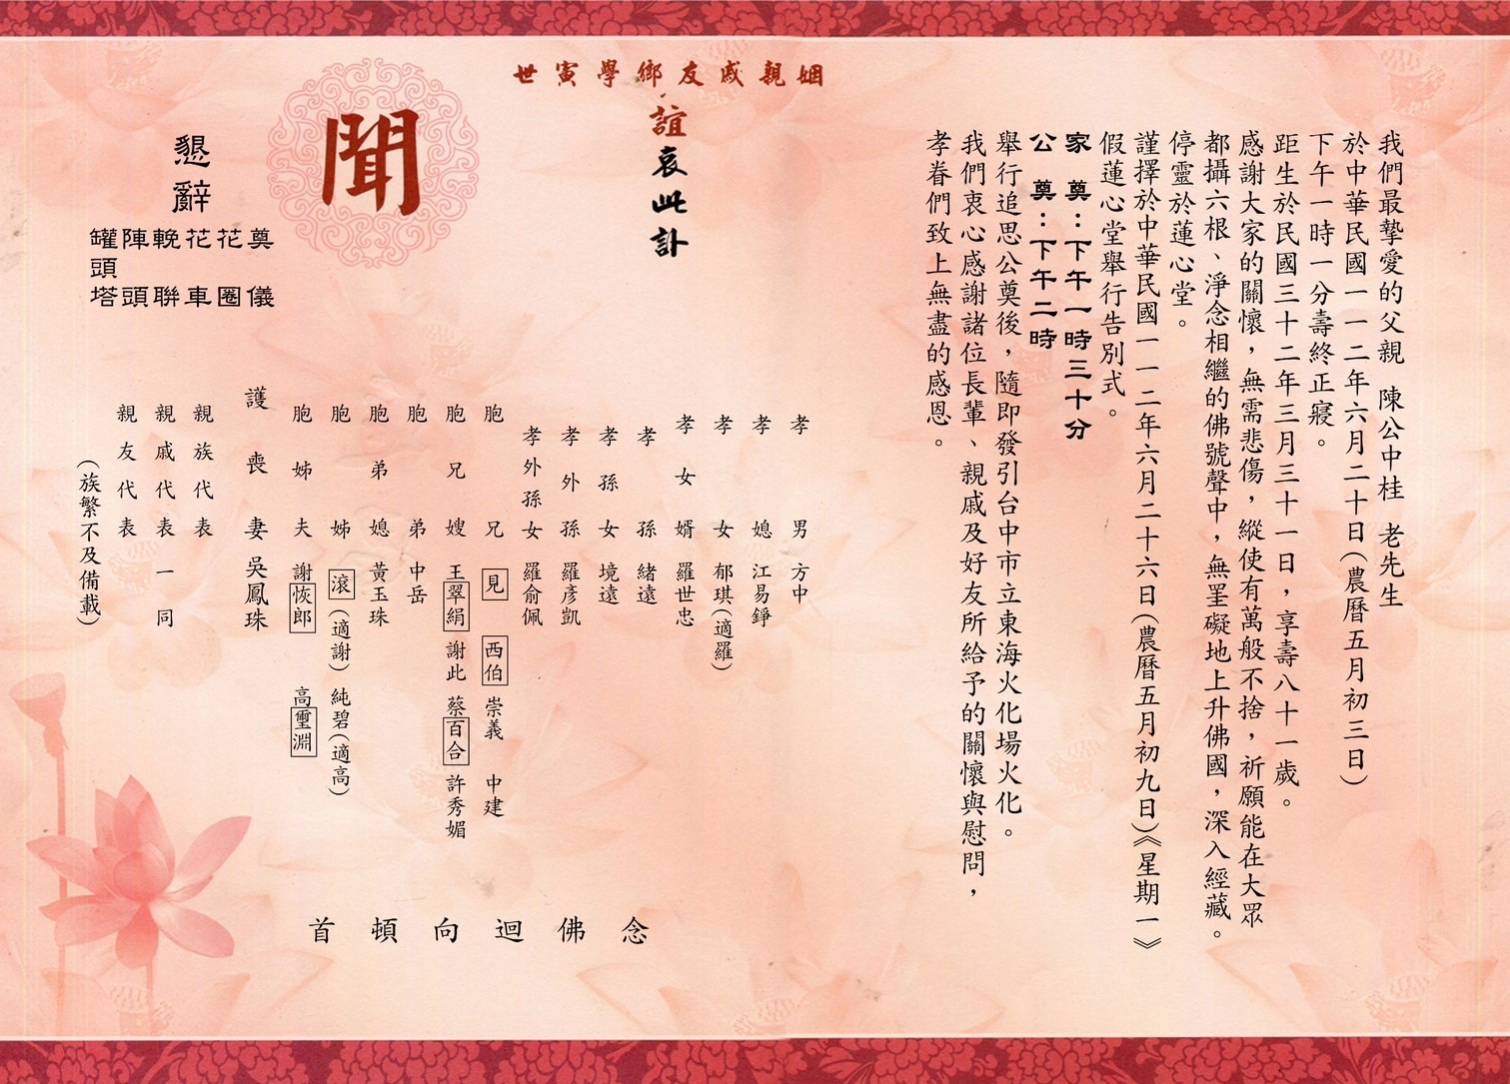 我們最摯愛的父親 陳公中桂 老先生
於中華民國一一二年六月二十日(農曆五月初三日)
下午一時一分壽終正寢。
距生於民國三十二年三月三十一日,享壽八十一歲。
感謝大家的關懷,無需悲傷,縱使有萬般不捨,祈願能在大眾
都攝六根、淨念相繼的佛號聲中,無罣礙地上升佛國,深入經藏。
停靈於蓮心堂。
謹擇於中華民國一一二年六月二十六日(農曆五月初九日)《星期一》
假蓮心堂舉行告別式。
家 奠:下午一時三十分
公 奠:下午二時
舉行追思公奠後,隨即發引台中市立東海火化場火化。
我們衷心感謝諸位長輩、親戚及好友所給予的關懷與慰問,
孝眷們致上無盡的感恩。
姻親戚友鄉學寅世
誼哀此訃
聞
懇辭
奠儀
花圈
花車
輓聯
陣頭
罐頭塔
孝男 方中
孝媳 江易錚
孝女 郁琪(適羅)
孝女婿 羅世忠
孝孫 緒遠
孝孫女 境遠
孝外孫 羅彥凱
孝外孫女 羅俞佩
胞兄 見 西伯 崇義 中建
胞兄嫂 王翠絹 謝此 蔡百合 許秀媚
胞弟 中岳
胞弟媳 黃玉珠
胞姊 滾(適謝) 純碧(適高)
胞姊夫 謝恢郎 高璽淵
護喪妻 吳鳳珠
親族代表
親戚代表一同
親友代表
(族繁不及備載)
念佛迴向頓首